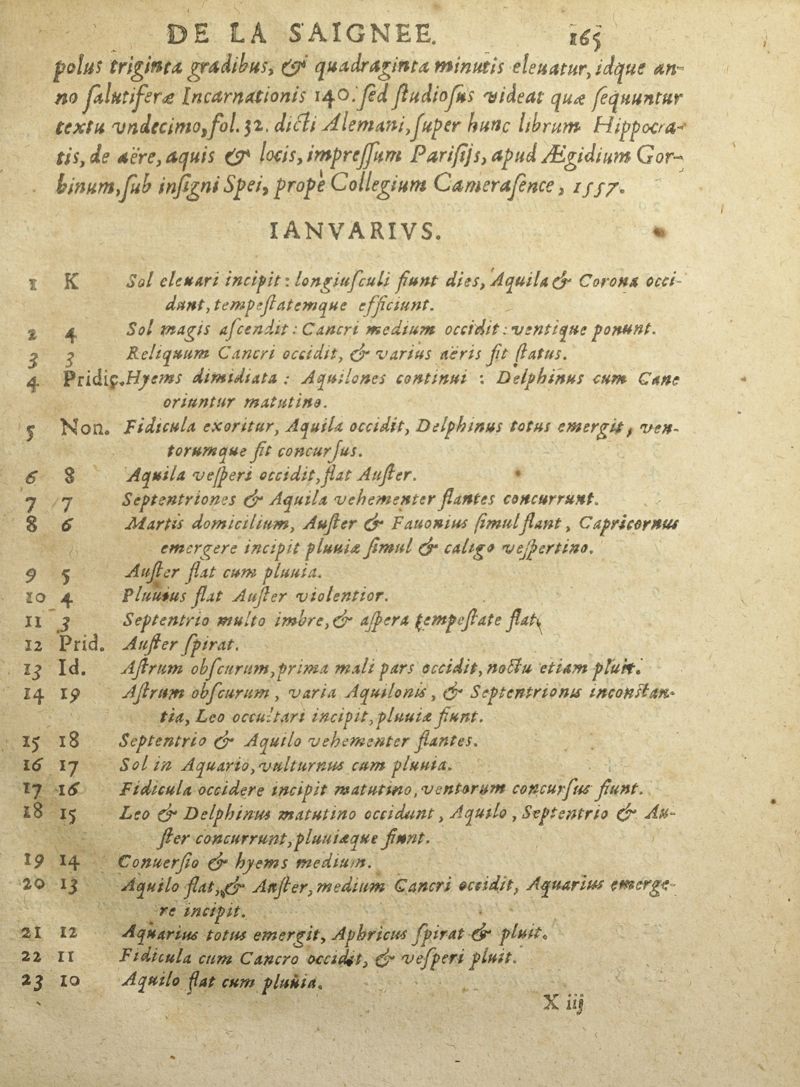 DE LA SAIGNEE. 165
polus triginta gradibus, & quadraginta minutis eleuatur, idque an-
no salutiferæ Incarnationis 140. sed studiosus videat quæ sequuntur
textu vndecimo, fol. 32. dicti Alemani, super hunc librum Hippocra-
tis, de aëre, aquis & locis, impressum Parisijs, apud Ægidium Gor-
binum, sub insigni Spei, propè Collegium Camerasence, 1557.
IANVARIVS.
1 K Sol eleuari incipit : longiusculi fiunt dies, Aquila & Corona occi-
dunt, tempestatemque efficiunt.
2 4 Sol magis ascendit : Cancri medium occidit : ventique ponunt.
3 3 Reliquum Cancri occidit, & varius aëris fit status.
4 Pridie. Hyems dimidiata : Aquilones continui : Delphinus cum Cane
oriuntur matutino.
5 Non. Fidicula exoritur, Aquila occidit, Delphinus totus emergit, ven-
torumque fit concursus.
6 8 Aquila vesperi occidit, flat Auster.
7 7 Septentriones & Aquila vehementer flantes concurrunt.
8 6 Martis domicilium, Auster & Fauonius simul flant, Capricornus
emergere incipit pluuiæ simul & caligo vespertino.
9 5 Auster flat cum pluuia.
10 4 Pluuius flat Auster violentior.
11 3 Septentrio multo imbre, & aspera tempestate flat.
12 Prid. Auster spirat.
13 Id. Astrum obscurum, prima mali pars occidit, noctu etiam pluit.
14 19 Astrum obscurum, varia Aquilonis, & Septentrionis inconstan-
tia, Leo occultari incipit, pluuiæ fiunt.
15 18 Septentrio & Aquilo vehementer flantes.
16 17 Sol in Aquario, vulturnus cum pluuia.
17 16 Fidicula occidere incipit matutino, ventorum concursus fiunt.
18 15 Leo & Delphinus matutino occidunt, Aquilo, Septentrio & Au-
ster concurrunt, pluuiæque fiunt.
19 14 Conuersio & hyems medium.
20 13 Aquilo flat, & Auster, medium Cancri occidit, Aquarius emerge-
re incipit.
21 12 Aquarius totus emergit, Aphricus spirat & pluit.
22 11 Fidicula cum Cancro occidit, & vesperi pluit.
23 10 Aquilo flat cum pluuia.
X iij